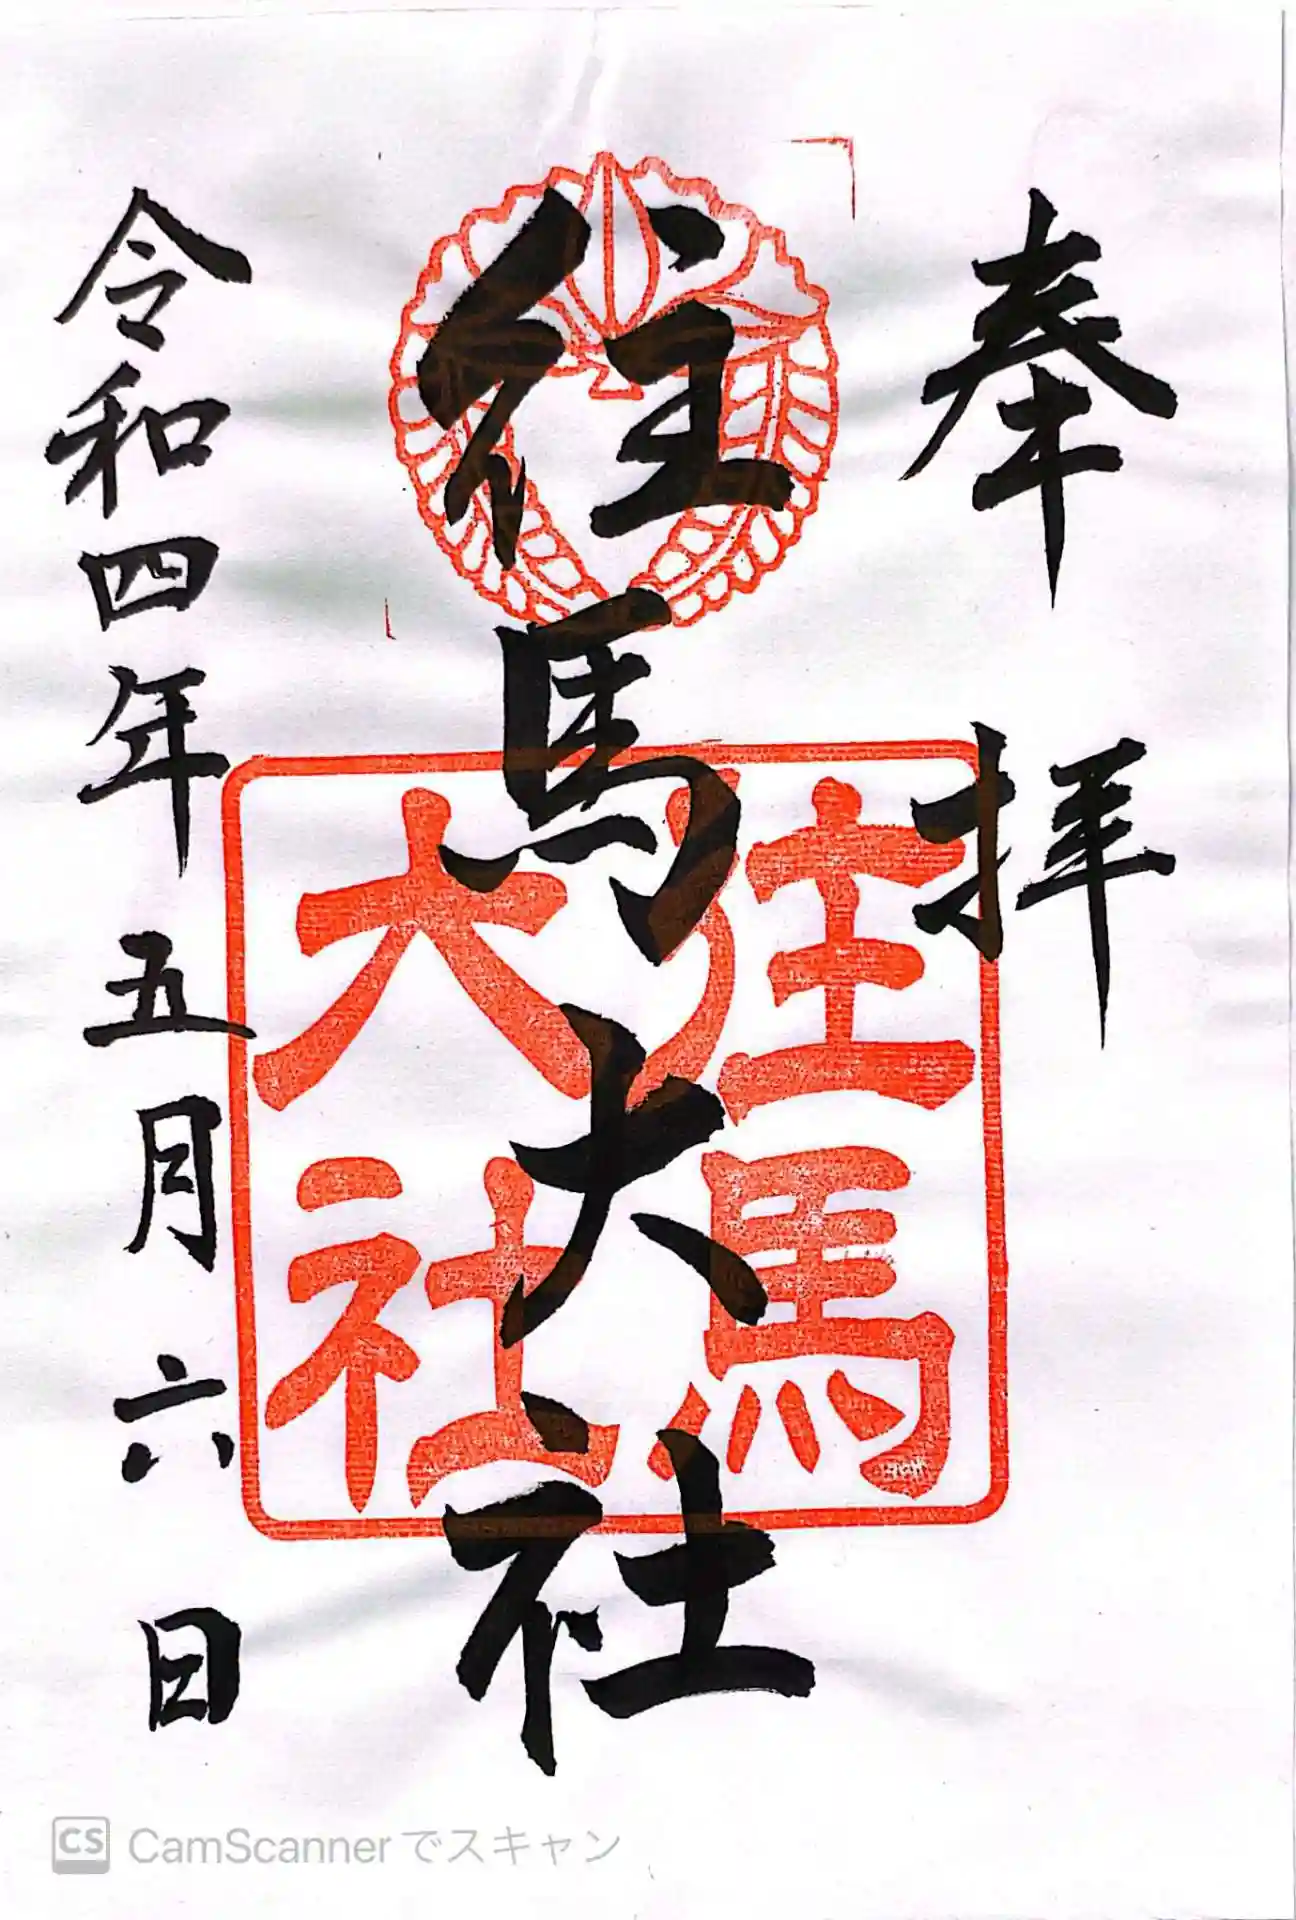 奉拝
往馬大社
往馬
大社
令和四年五月六日
CS CamScannerでスキャン